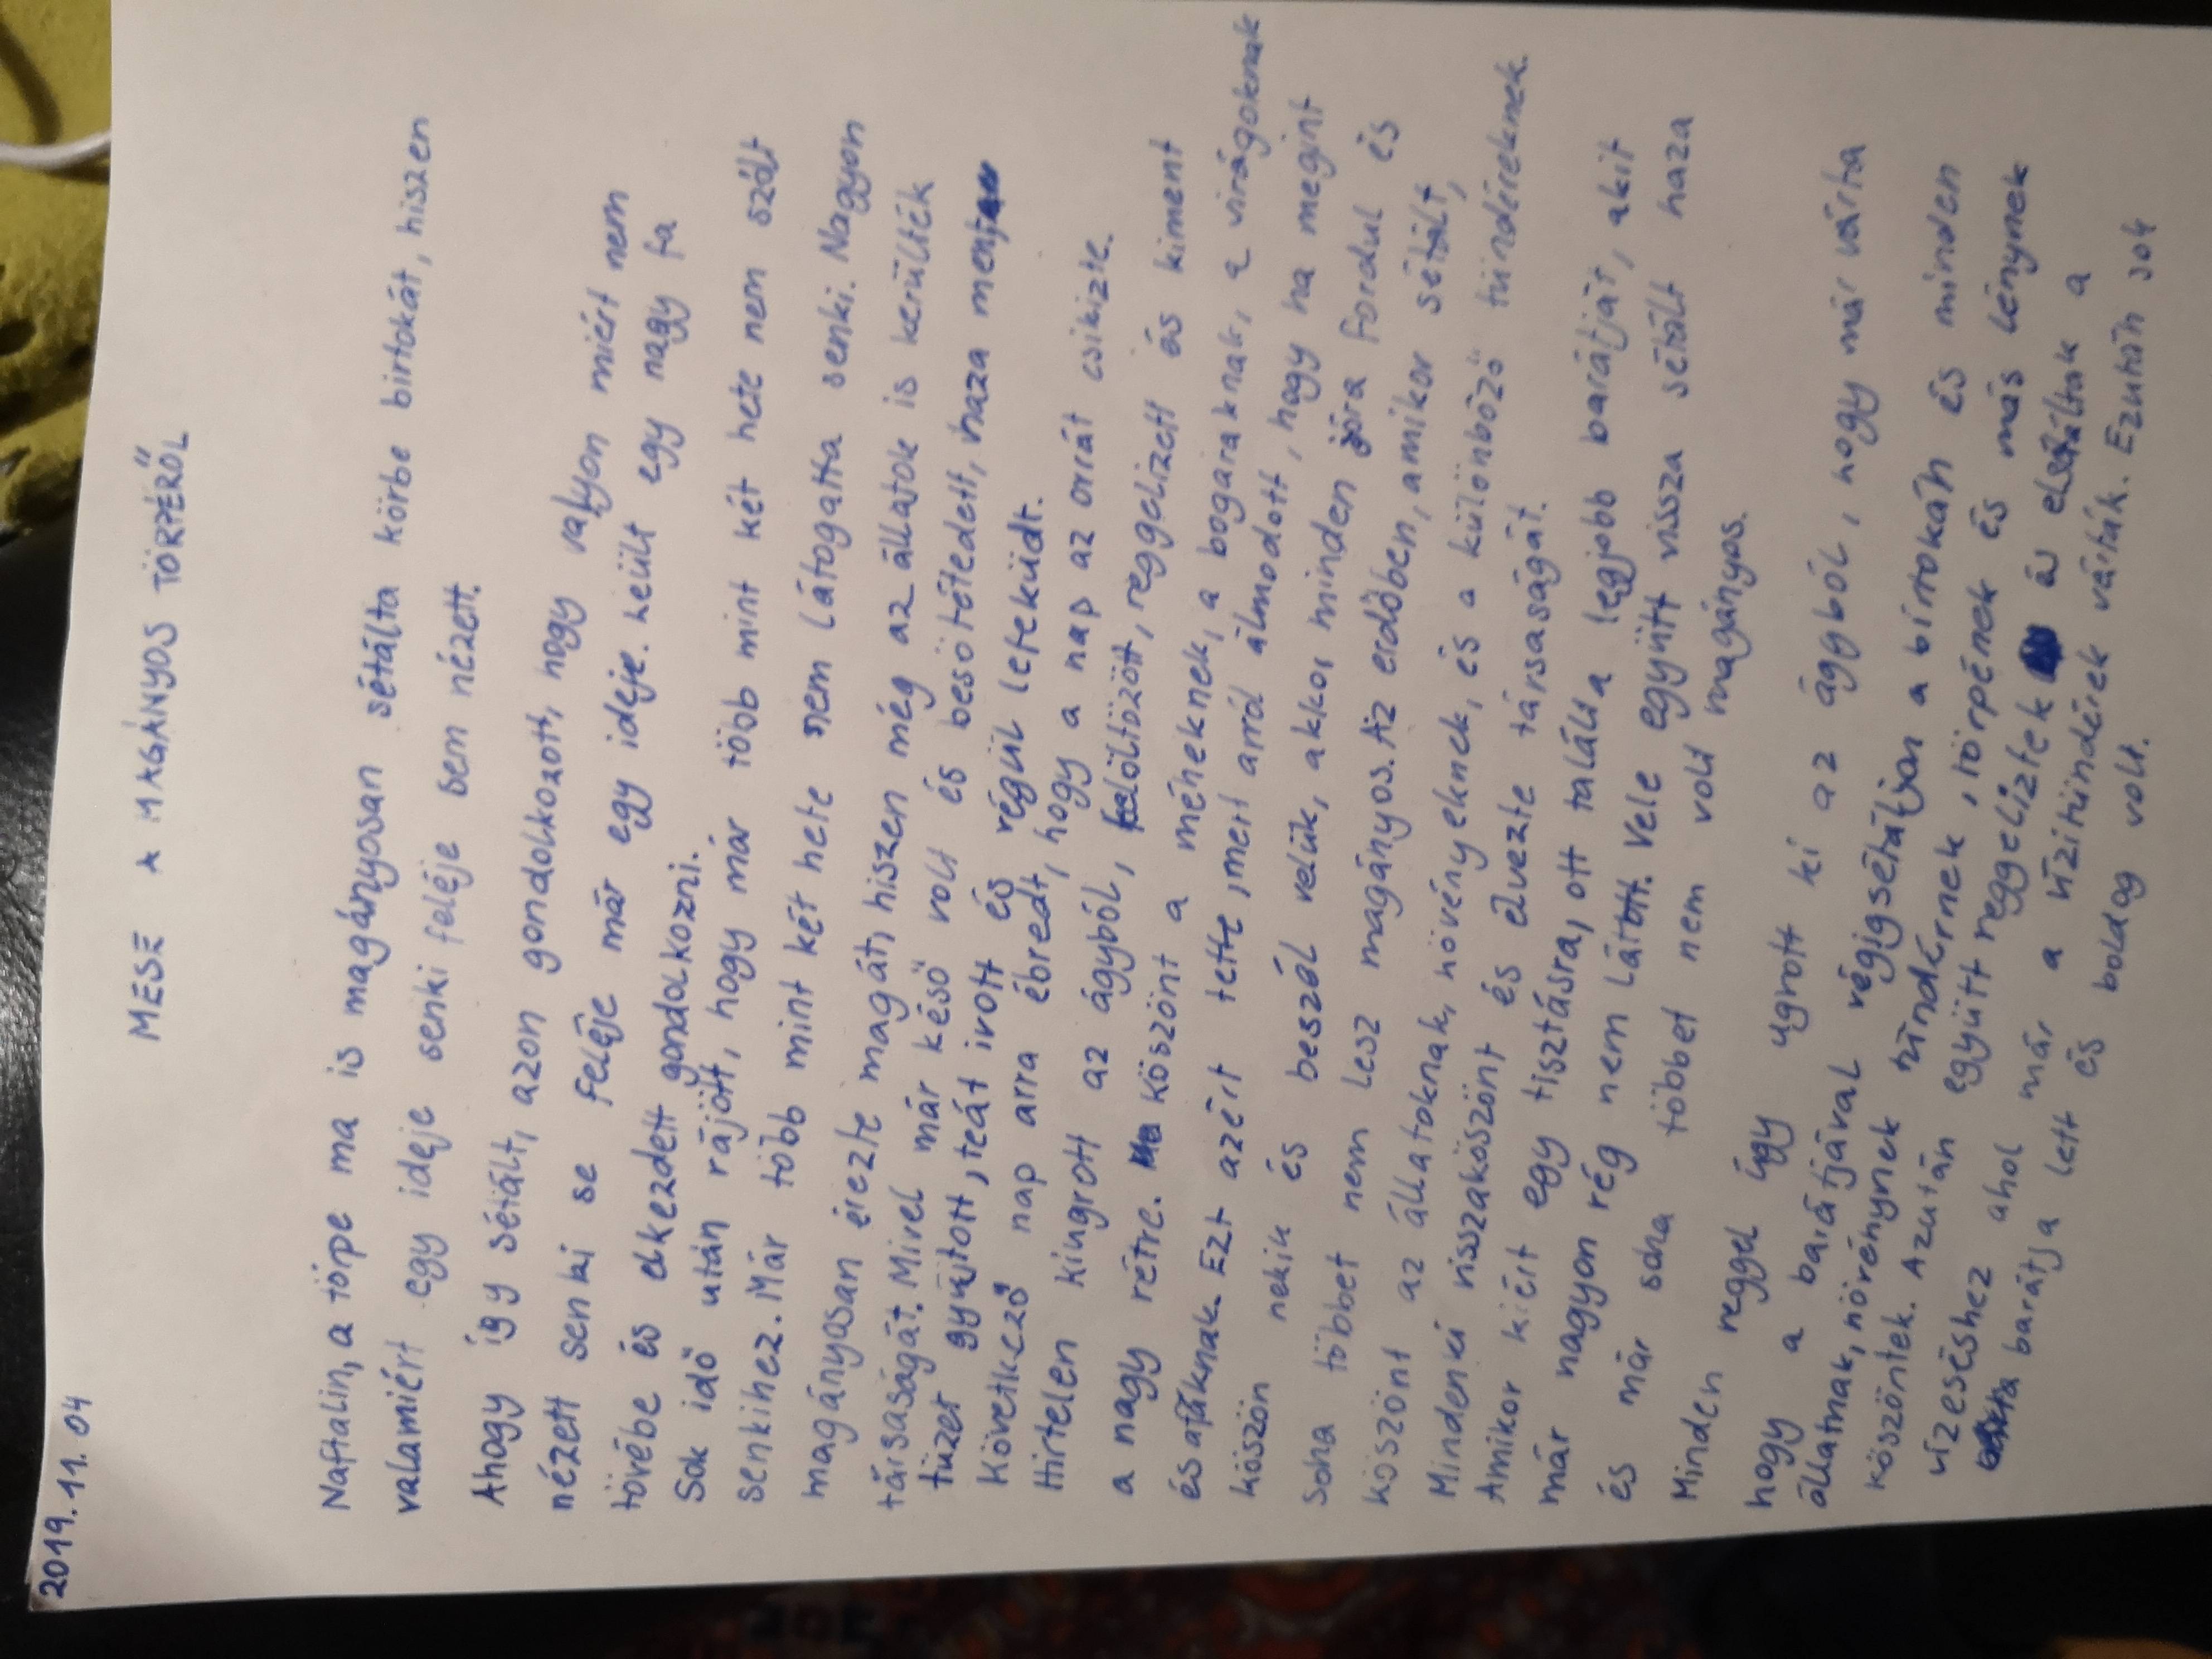 2019.11.04
MESE A MAGÁNYOS TÖRPÉRŐL
Naftalin, a törpe ma is magányosan sétálta körbe birtokát, hiszen
valamiért egy ideje senki feléje sem nézett.
Ahogy így sétált, azon gondolkozott, hogy valyon miért nem
nézett senki se feléje már egy ideje. Leült egy nagy fa
tövébe és elkezdett gondolkozni.
Sok idő után rájött, hogy már több mint két hete nem szólt
senkihez. Már több mint két hete nem látogatta senki. Nagyon
magányosan érezte magát, hiszen még az állatok is kerülték
társaságát. Mivel már késő volt és besötétedett, haza ment,
tüzet gyűjtott, teát ivott és végül lefeküdt.
Következő nap arra ébredt, hogy a nap az orrát csikizte.
Hirtelen kiugrott az ágyból, felöltözött, reggelizett és kiment
a nagy rétre. Köszönt a méheknek, a bogaraknak, a virágoknak
és a fáknak. Ezt azért tette, mert arról álmodott, hogy ha megint
köszön nekik és beszél velük, akkor minden jóra fordul és
soha többet nem lesz magányos. Az erdőben, amikor sétált,
köszönt az állatoknak, növényeknek, és a különböző tündéreknek.
Mindenki visszaköszönt és élvezte társaságát.
Amikor kiért egy tisztásra, ott találta legjobb barátját, akit
már nagyon rég nem látott. Vele együtt vissza sétált haza
és már soha többet nem volt magányos.
Minden reggel úgy ugrott ki az ágyból, hogy már várta
hogy a barátjával végigsétáljon a birtokán és minden
állatnak, növénynek tündérnek, törpének és más lénynek
köszöntek. Azután együtt reggeliztek és elsétáltak a
vízeséshez ahol már a vízitündérek várták. Ezután sok
barátja lett és boldog volt.